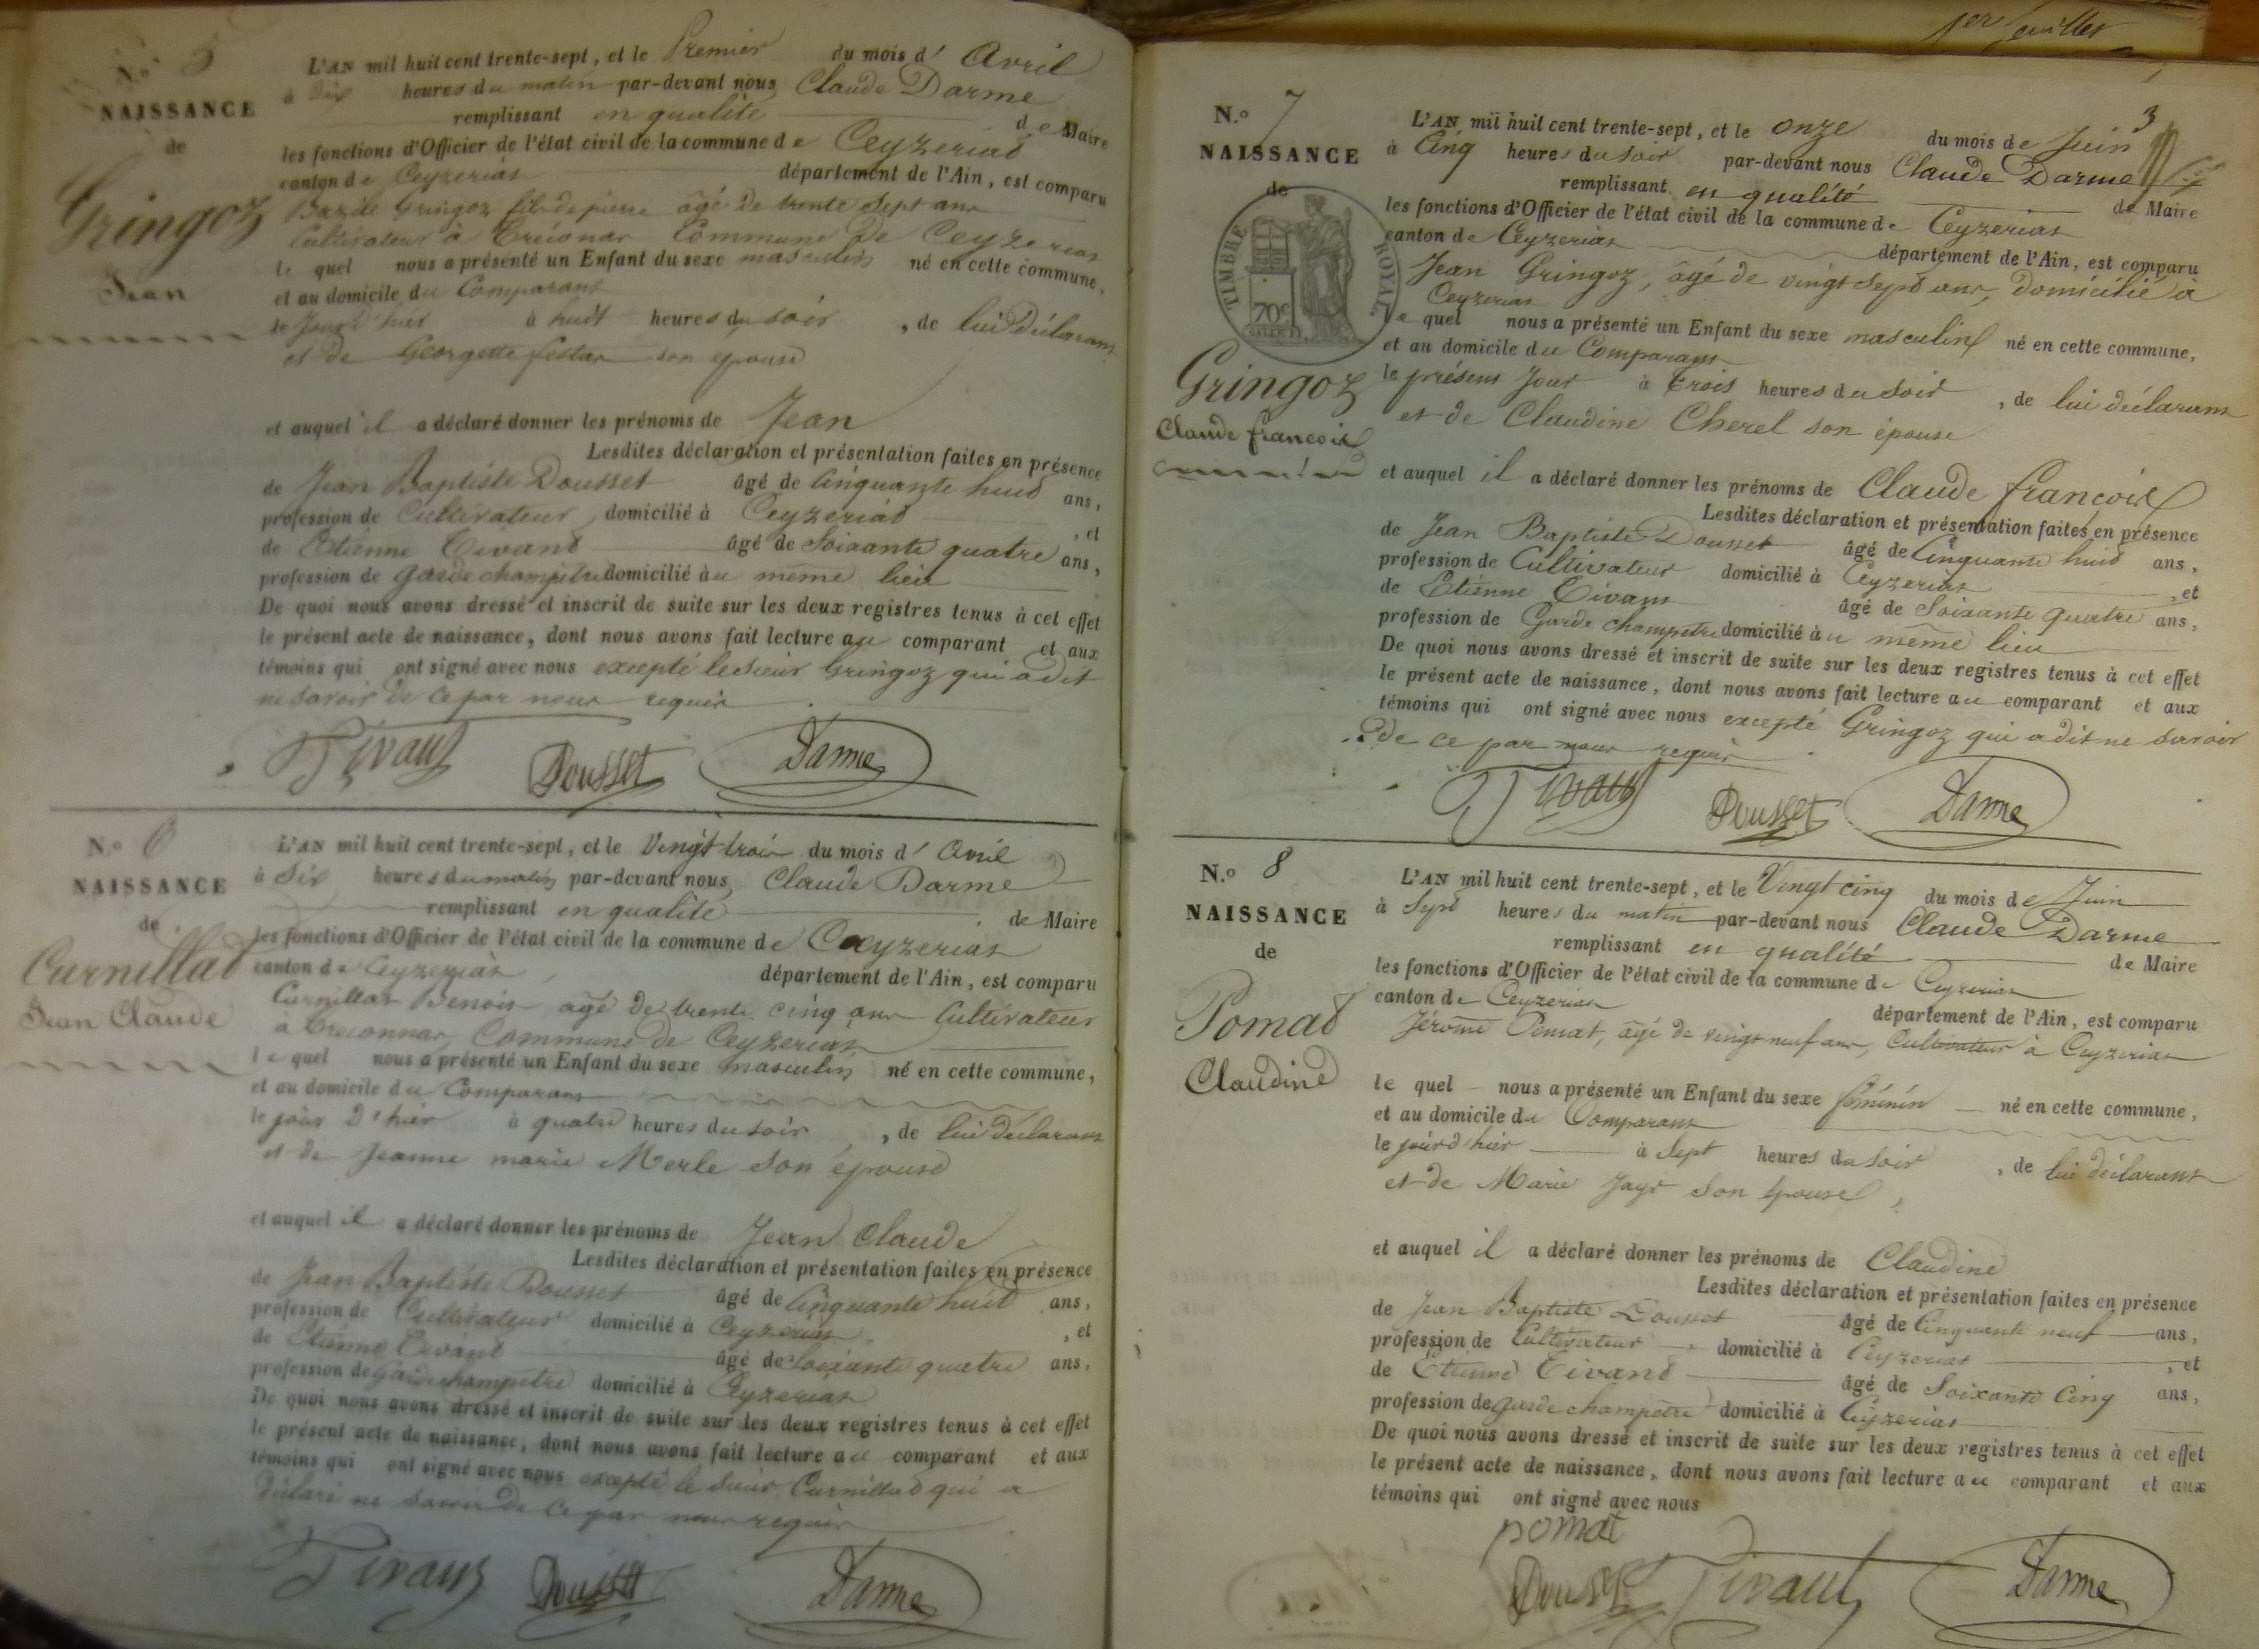 N.o 5
NAISSANCE
de
Gringoz
Jean
L'AN mil huit cent trente-sept, et le Premier du mois d' Avril
à dix heures du matin par-devant nous Claude Darme
remplissant en qualité de Maire
les fonctions d'Officier de l'état civil de la commune de Ceyzeriat
canton de Ceyzeriat département de l'Ain, est comparu
Bazile Gringoz fils de pierre âgé de trente Sept ans
Cultivateur à Treconnas Commune de Ceyzeriat
le quel nous a présenté un Enfant du sexe masculin né en cette commune,
et au domicile du Comparant
le Jour d'hier à huit heures du soir, de lui déclarant
et de Georgette son epouse
et auquel il a déclaré donner les prénoms de Jean
Lesdites déclaration et présentation faites en présence
de Jean Baptiste Dousset âgé de Cinquante huit ans,
profession de Cultivateur domicilié à Ceyzeriat, et
de Etienne Tivant âgé de Soixante quatre ans,
profession de garde champêtre domicilié au même lieu
De quoi nous avons dressé et inscrit de suite sur les deux registres tenus à cet effet
le présent acte de naissance, dont nous avons fait lecture au comparant et aux
témoins qui ont signé avec nous excepté le sieur Gringoz qui a dit
ne savoir de ce par nous requis
Tivant Dousset Darme
N.o 6
NAISSANCE
de
Curnillat
Jean Claude
L'AN mil huit cent trente-sept, et le Vingt trois du mois d' Avril
à Six heures du matin par-devant nous Claude Darme
remplissant en qualité de Maire
les fonctions d'Officier de l'état civil de la commune de Ceyzeriat
canton de Ceyzeriat département de l'Ain, est comparu
Curnillat Benoit âgé de trente cinq ans Cultivateur
à Treconnas, Commune de Ceyzeriat
le quel nous a présenté un Enfant du sexe masculin né en cette commune,
et au domicile du Comparant
le jour d'hier à quatre heures du soir, de lui déclarant
et de Jeanne marie Merle son épouse
et auquel il a déclaré donner les prénoms de Jean Claude
Lesdites déclaration et présentation faites en présence
de Jean Baptiste Dousset âgé de Cinquante huit ans,
profession de Cultivateur domicilié à Ceyzeriat, et
de Etienne Tivant âgé de Soixante quatre ans,
profession de garde champetre domicilié à Ceyzeriat
De quoi nous avons dressé et inscrit de suite sur les deux registres tenus à cet effet
le présent acte de naissance, dont nous avons fait lecture au comparant et aux
témoins qui ont signé avec nous excepté le sieur Curnillat qui a
déclaré ne savoir de ce par nous requis
Tivant Dousset Darme
1er feuillet
3
N.o 7
NAISSANCE
de
TIMBRE ROYAL
70c
Gringoz
Claude françois
L'AN mil huit cent trente-sept, et le onze du mois de Juin
à Cinq heures du soir par-devant nous Claude Darme
remplissant en qualité de Maire
les fonctions d'Officier de l'état civil de la commune de Ceyzeriat
canton de Ceyzeriat département de l'Ain, est comparu
Jean Gringoz, âgé de vingt sept ans, domicilié à
Ceyzeriat
le quel nous a présenté un Enfant du sexe masculin né en cette commune,
et au domicile du Comparant
le présent Jour à trois heures du soir, de lui déclarant
et de Claudine Cherel son épouse
et auquel il a déclaré donner les prénoms de Claude françois
Lesdites déclaration et présentation faites en présence
de Jean Baptiste Dousset âgé de Cinquante huit ans,
profession de Cultivateur domicilié à Ceyzeriat, et
de Etienne Tivant âgé de Soixante quatre ans,
profession de Garde champetre domicilié au même lieu
De quoi nous avons dressé et inscrit de suite sur les deux registres tenus à cet effet
le présent acte de naissance, dont nous avons fait lecture au comparant et aux
témoins qui ont signé avec nous excepté Gringoz qui a dit ne savoir
de ce par nous requis
Tivant Dousset Darme
N.o 8
NAISSANCE
de
Pomat
Claudine
L'AN mil huit cent trente-sept, et le Vingt cinq du mois de Juin
à Sept heures du matin par-devant nous Claude Darme
remplissant en qualité de Maire
les fonctions d'Officier de l'état civil de la commune de Ceyzeriat
canton de Ceyzeriat département de l'Ain, est comparu
Jérome Pomat, âgé de vingt neuf ans, Cultivateur à Ceyzeriat
le quel nous a présenté un Enfant du sexe féminin né en cette commune,
et au domicile du Comparant
le jour d'hier à Sept heures du soir, de lui déclarant
et de Marie Jayr son épouse,
et auquel il a déclaré donner les prénoms de Claudine
Lesdites déclaration et présentation faites en présence
de Jean Baptiste Dousset âgé de Cinquante neuf ans,
profession de Cultivateur domicilié à Ceyzeriat, et
de Etienne Tivant âgé de Soixante Cinq ans,
profession de garde champetre domicilié à Ceyzeriat
De quoi nous avons dressé et inscrit de suite sur les deux registres tenus à cet effet
le présent acte de naissance, dont nous avons fait lecture au comparant et aux
témoins qui ont signé avec nous
pomat
Dousset Tivant Darme